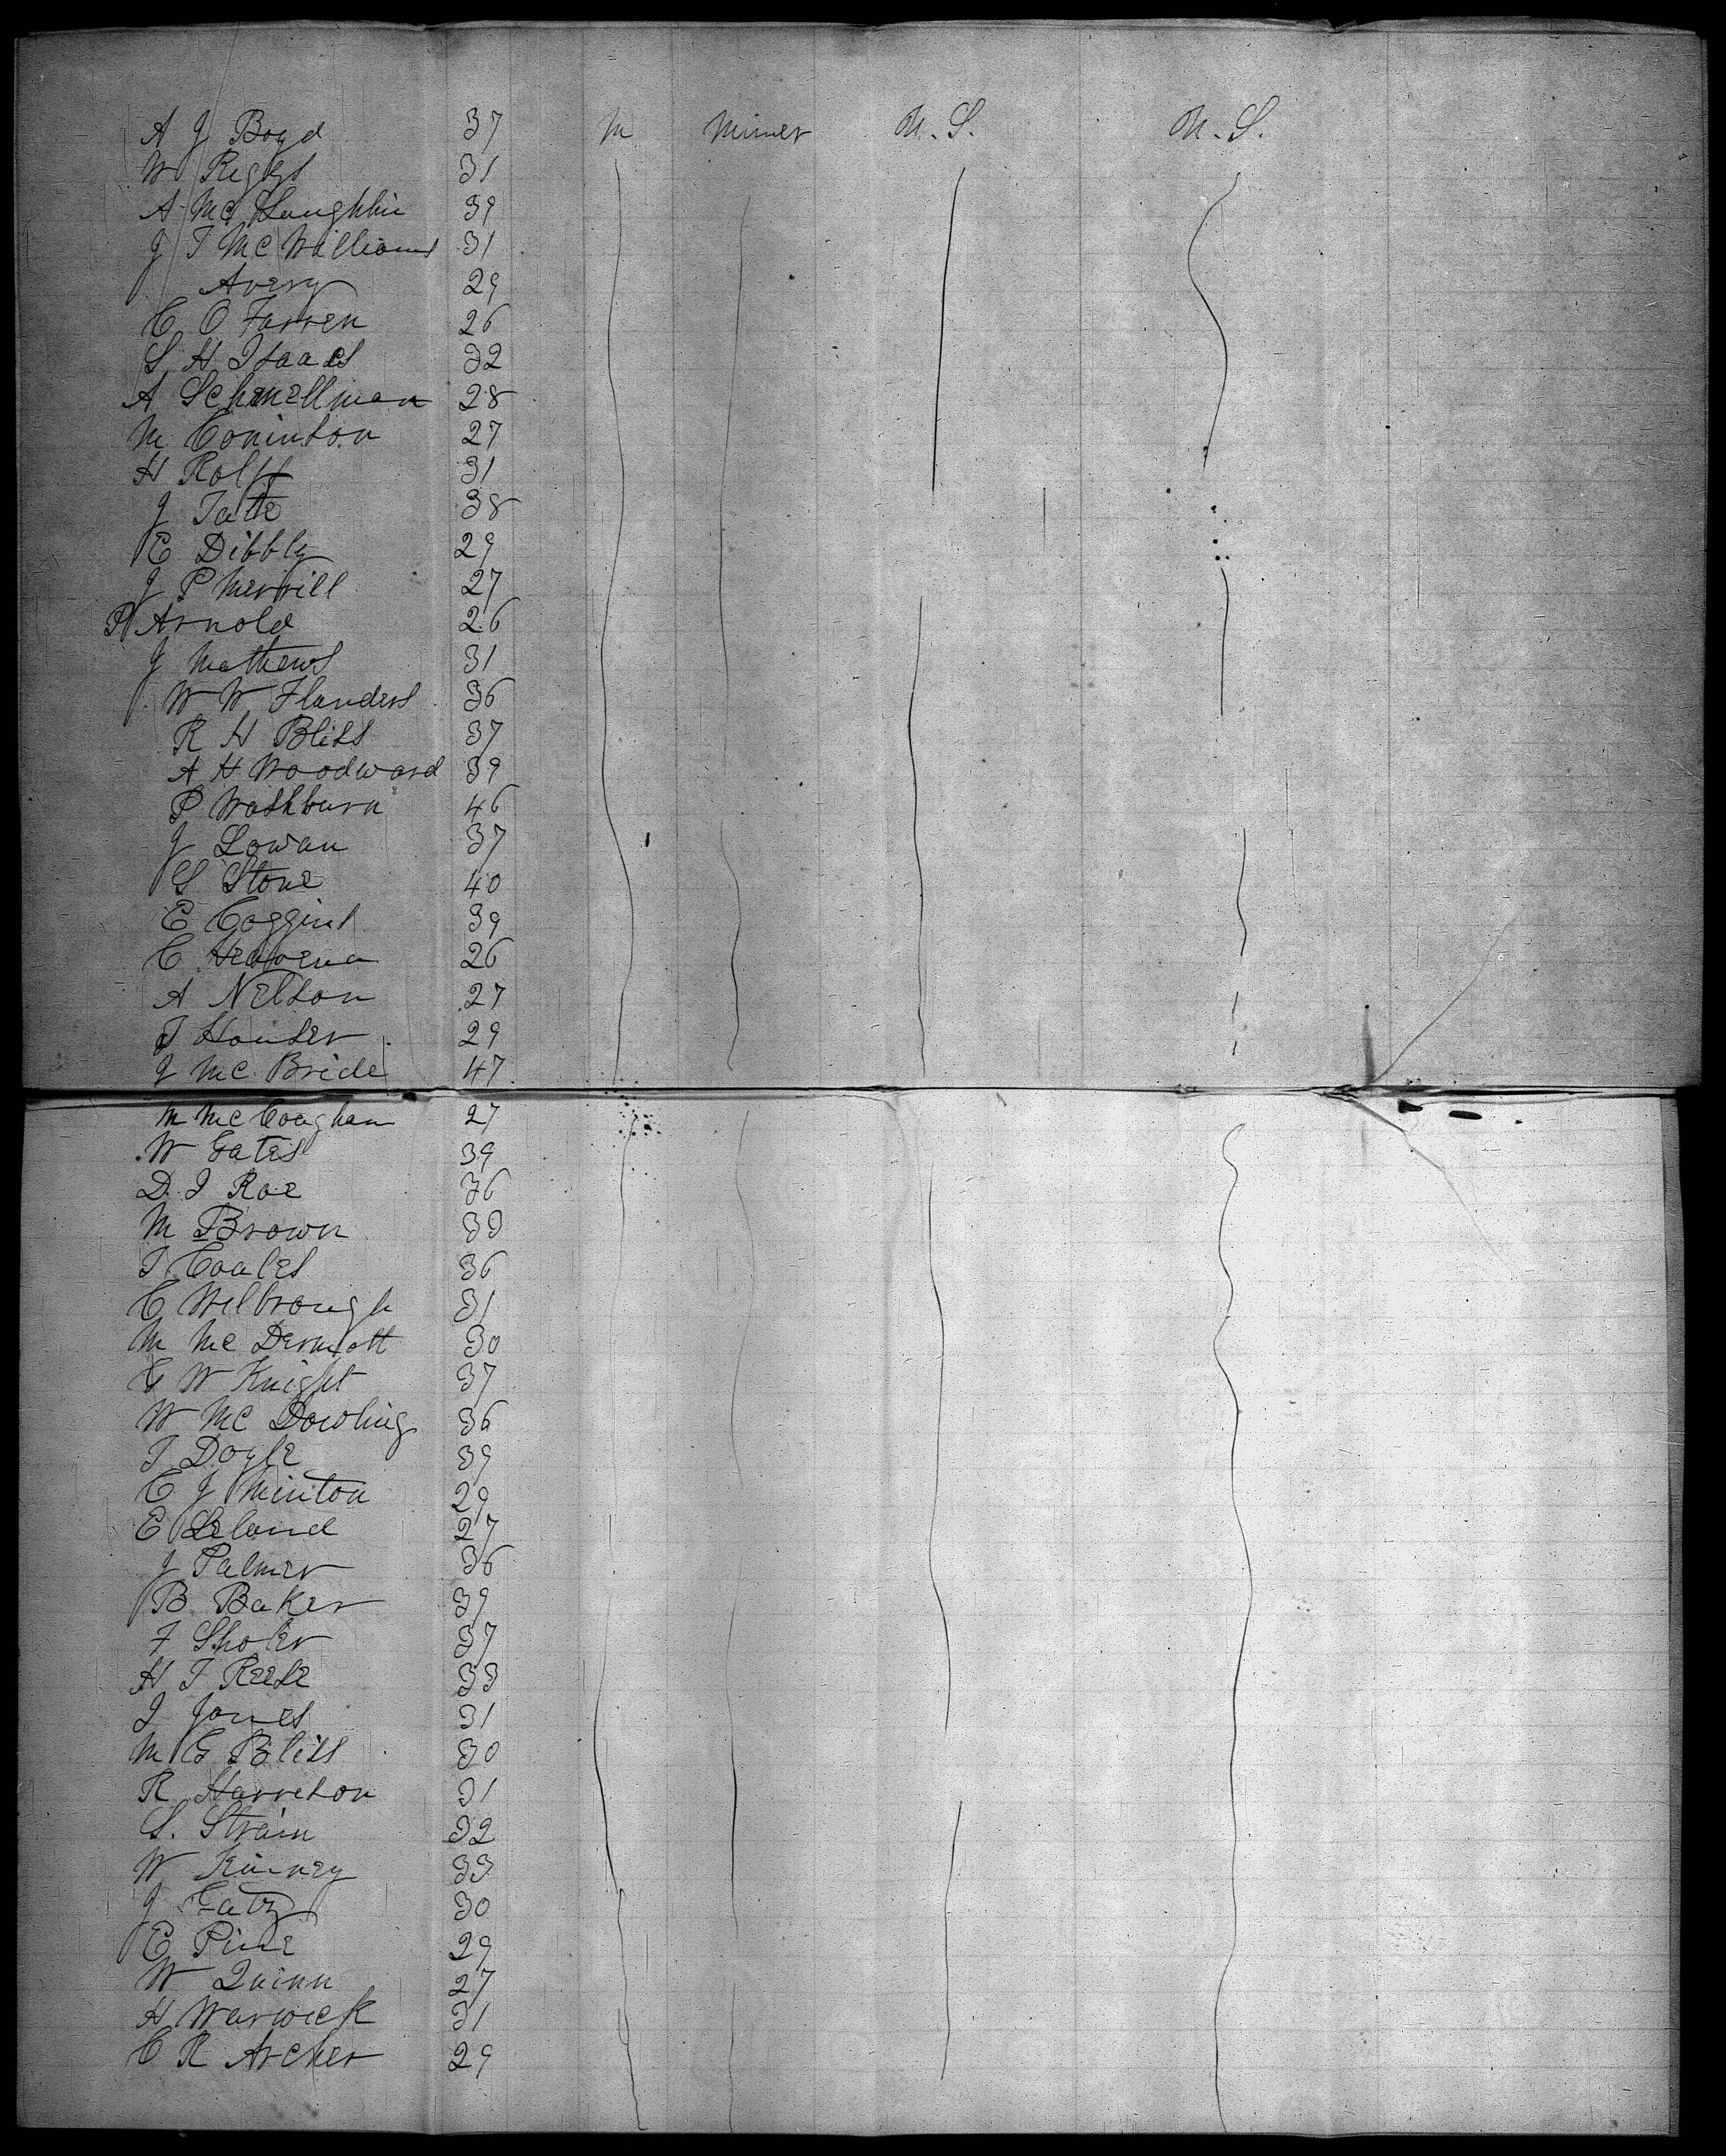 A J Boyd 37 M Miner U.S. U.S.
W Riggs 31
A McLaughlin 39
J T McWilliams 31
Avery 29
C O Farren 26
S H Isaacs 32
A Schmellman 28
M Coninson 27
H Rolff 31
J Tatte 38
E Dibbly 29
J P Merrill 27
P Arnold 26
J Mathews 31
W W Flanders 36
R H Bliss 37
A H Woodward 39
P Washburn 46
J Lowan 37
S Stone 40
E Coggins 39
C 26
A Nelson 27
T Houser 29
J McBride 47
M 27
W Gates 39
D. I Roe 36
M Brown 33
T Coales 36
C Welbrough 31
M McDermott 30
G W Knight 37
W McDowling 36
T Doyle 39
C J Minton 29
E Leland 27
J Palmer 36
B Baker 39
F Sholer 37
H T Reese 33
I Jones 31
M G Bliss 30
R Harreson 31
S. Strain 32
W Kinney 33
J 30
E Pine 29
W Quinn 27
H Warwick 31
C R Archer 29